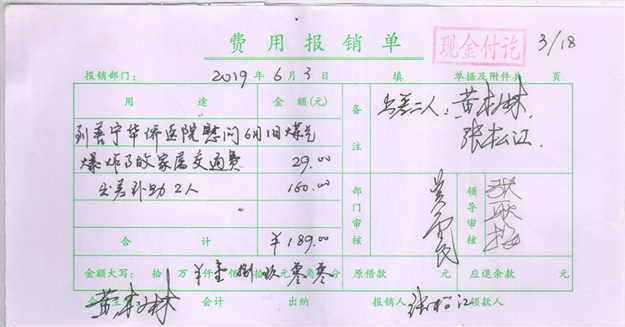 费用报销单 现金付讫 3/18
报销部门： 2019年6月3日 填 单据及附件共 页
用途 金额(元) 备注 出差二人：黄木林
张松江
到善宁华侨医院慰问6月1日煤气
爆炸事故家属交通费 29.00
出差补助2人 160.00 部门审核 领导审核
合计 ￥189.00
金额大写： 拾 万 ￥仟 壹佰 捌拾 玖元 零角 零分 原借款 元 应退余款 元
黄木林 会计 出纳 报销人 张松江 领款人